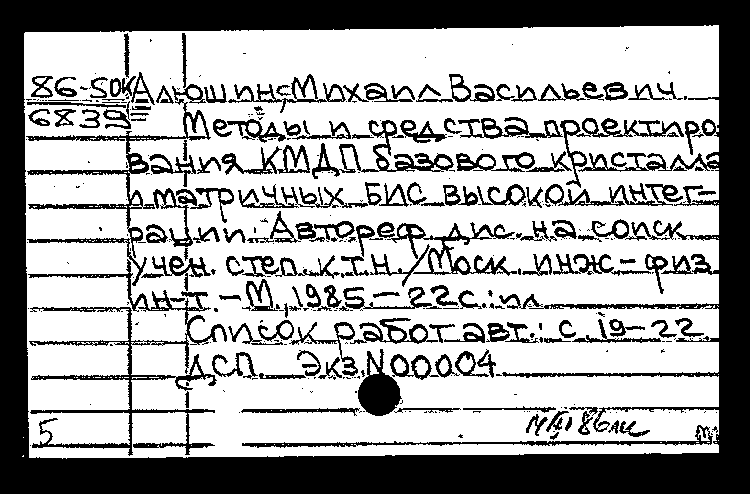 86-5ДК Алюшин, Михаил Васильевич.
6839 Методы и средства проектиро
вания КМДП базового кристалла
и матричных БИС высокой интег-
рации: Автореф. дис. на соиск
учен. степ. к.т.н. / Моск. инж-физ
ин-т. - М., 1985. - 22 с.: ил
Список работ авт.: с. 19-22.
ДСП. Экз. N00004
5